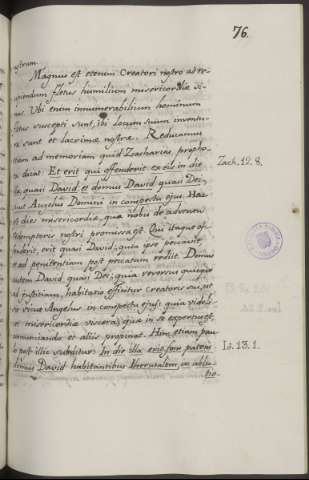 76.
nostrum.
Magnus est etenim Creatori nostro ad re-
cipiendum fletus humilium misericordiæ si-
nus. Ubi enim innumerabilium hominum
fletus suscepti sunt, ibi locum suum inventu-
ræ sunt et lacrimæ nostræ. Reducamus
etiam ad memoriam quid Zacharias prophe-
ta dicat: Et erit qui offenderit ex eis in die
illa quasi David et domus David quasi Dei,
sicut Angelus Domini in conspectu ejus. Hæc
est dies misericordiæ, quæ nobis de adventu
Redemptoris nostri promissa est. Qui itaque of-
fenderit, erit quasi David, quia ipse peccavit,
et ad penitentiam post peccatum rediit. Domus
autem David, quasi Dei; quia reversus quisque
ad justitiam, habitatio efficitur creatoris sui, sit-
que sicut Angelus in conspectu ejus: quia videt
misericordiæ viscera, quæ in se expertus est,
annuntiando et aliis propinat. Hinc etiam pau-
lo post illic subditur: In die illa erit fons patens
domui David habitantibus Jherusalem, in ablu-
tio-
Zach. 12. 8.
Id. 13. 1.